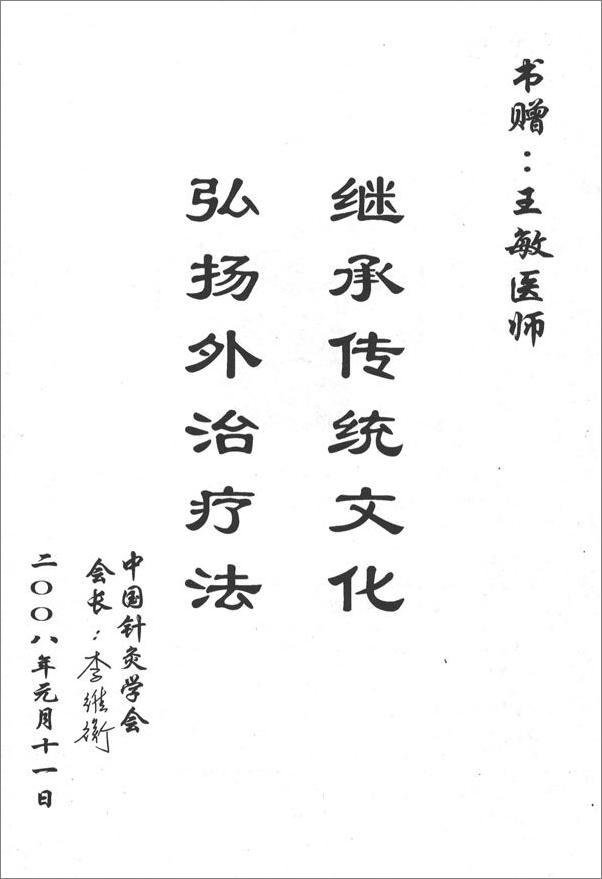 书赠：王敏医师
继承传统文化
弘扬外治疗法
中国针灸学会
会长：李维衡
二〇〇八年元月十一日